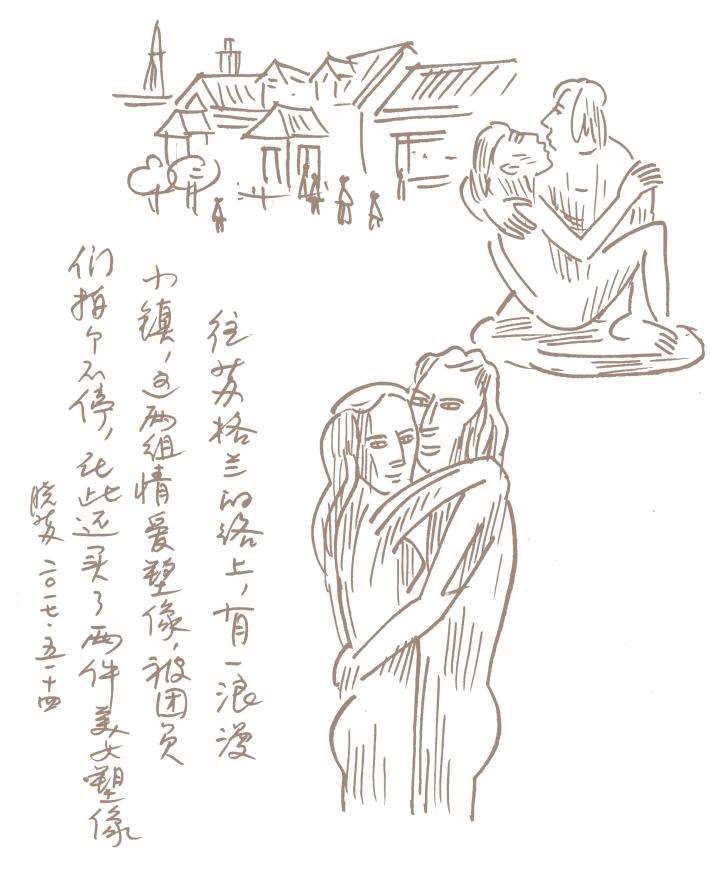 往苏格兰的路上，有一浪漫
小镇，这两组情爱塑像，被团员
们拍个不停，在此还买了两件美女塑像
晓苏 二〇一七·五·十四